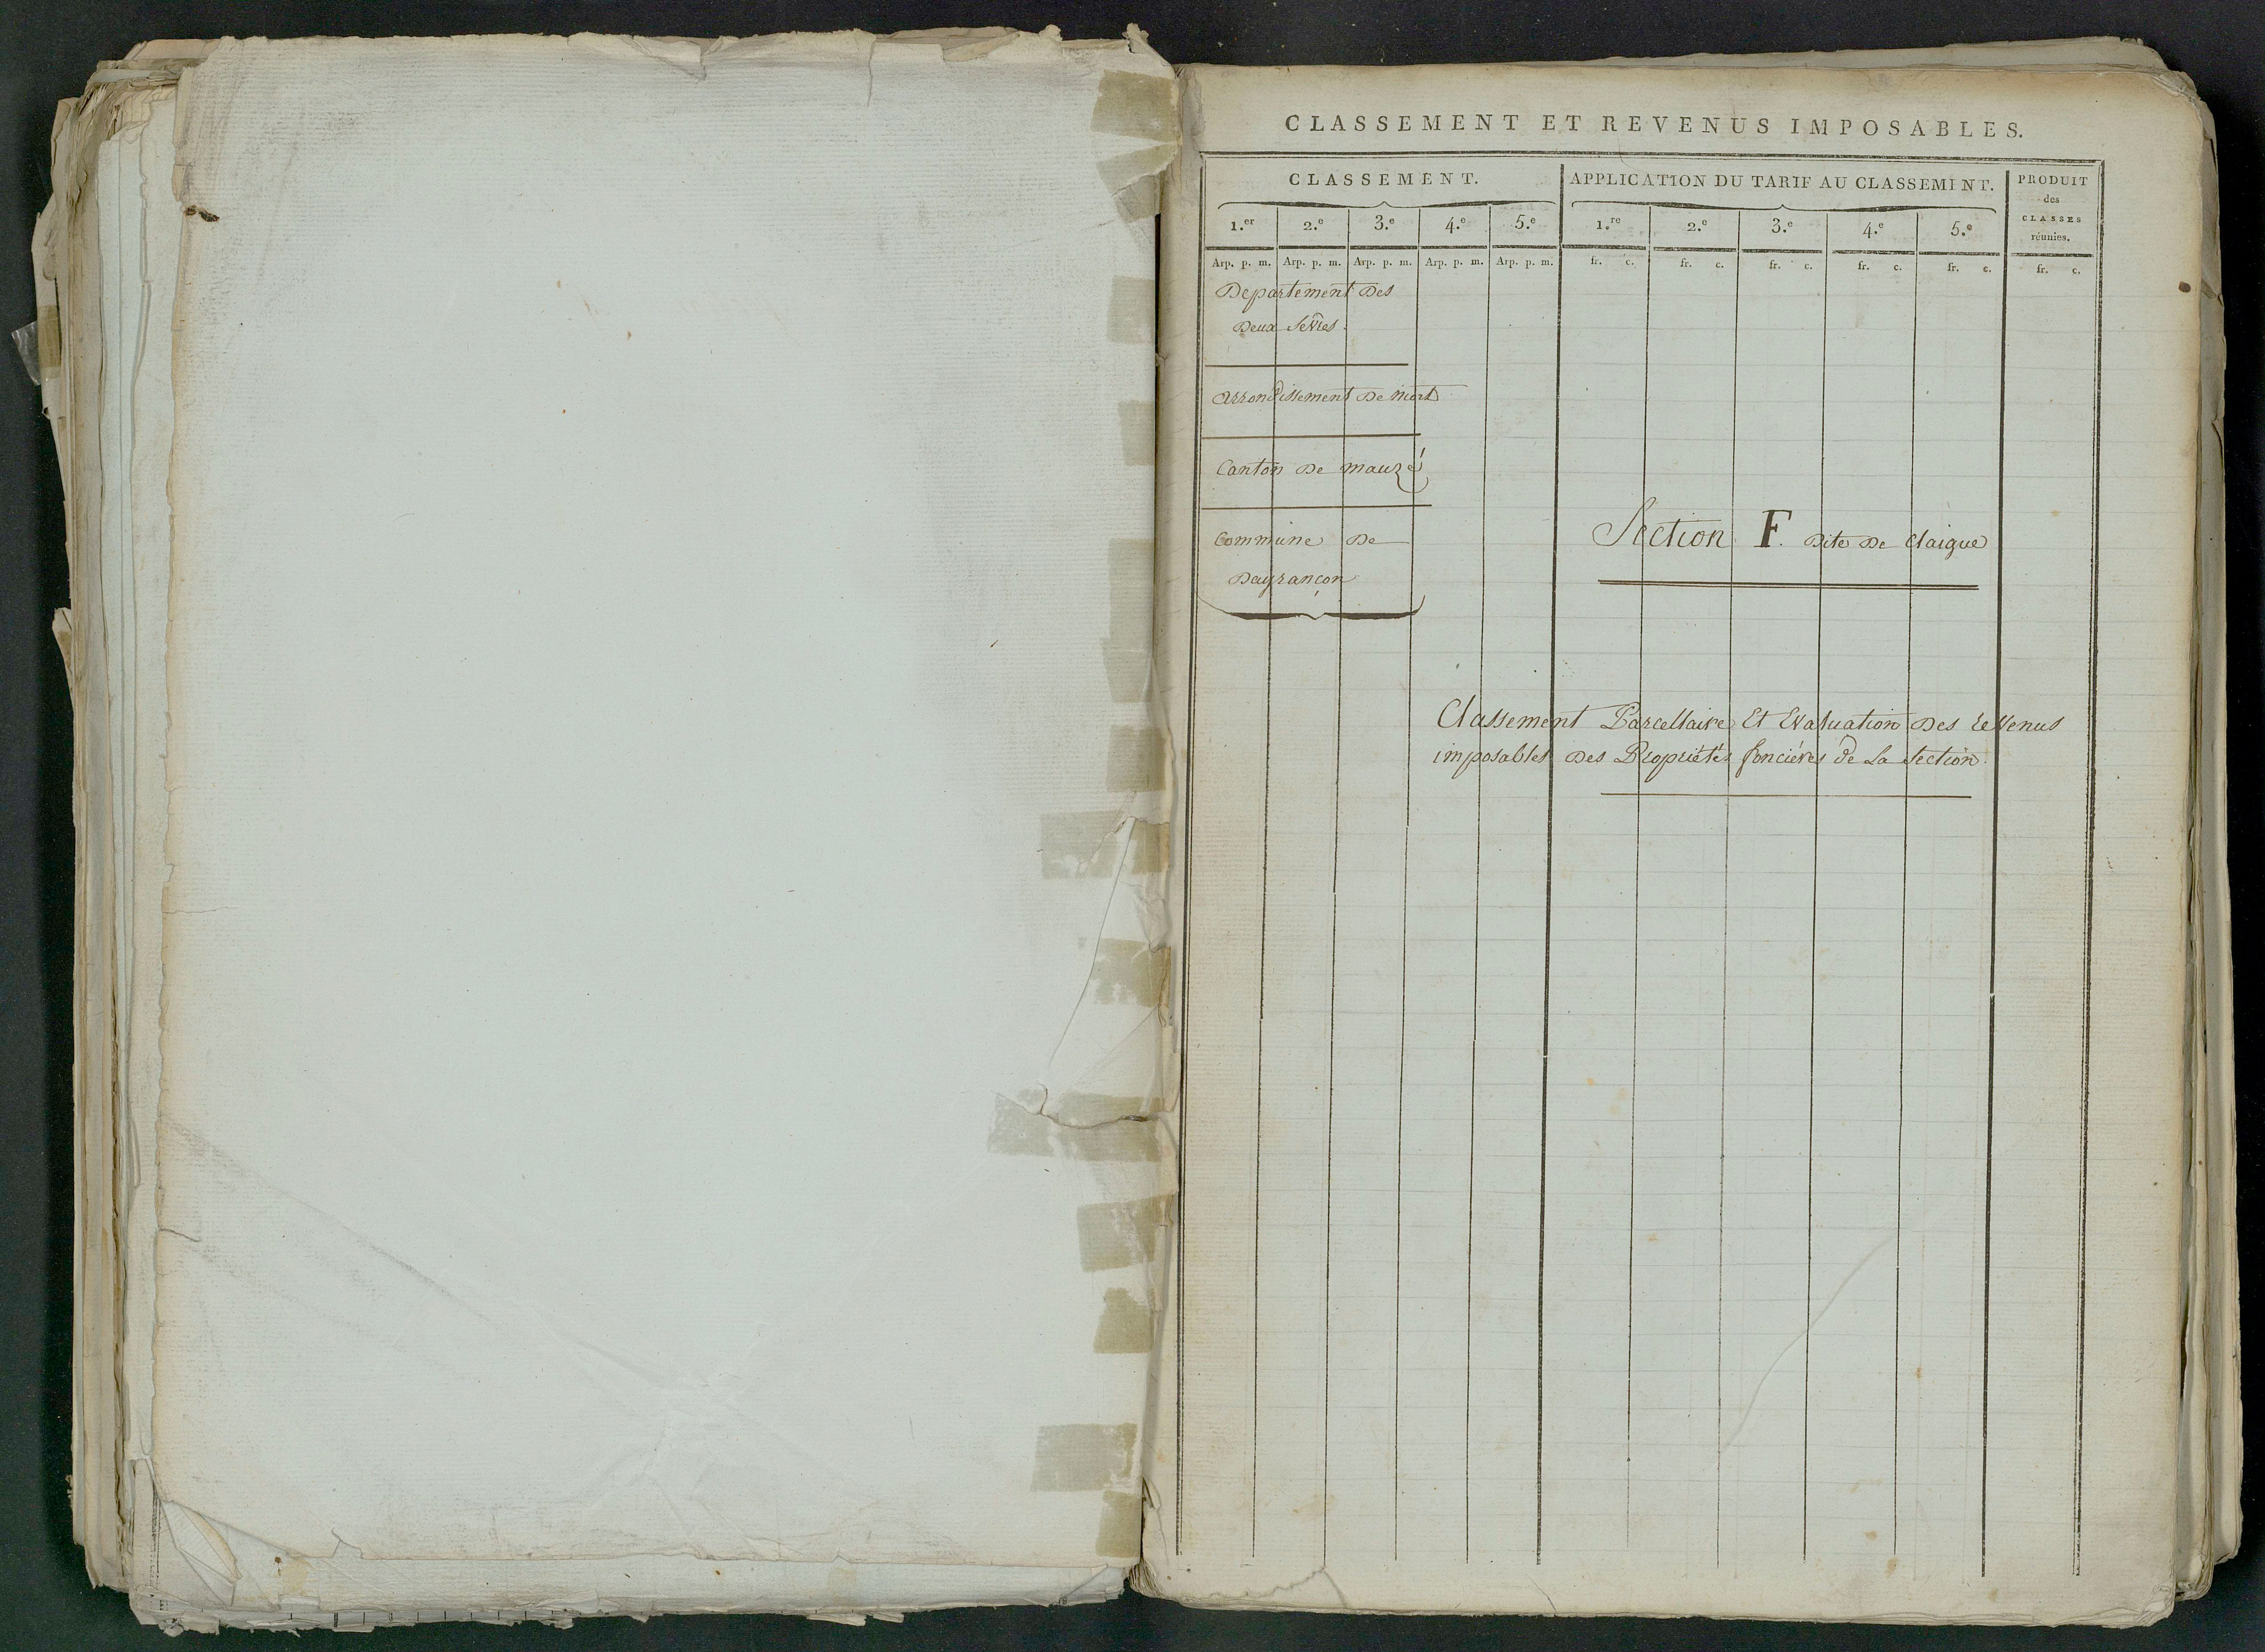 CLASSEMENT ET REVENUS IMPOSABLES.
CLASSEMENT. APPLICATION DU TARIF AU CLASSEMENT. PRODUIT
des
CLASSES
réunies.
1.er 2.e 3.e 4.e 5.e 1.re 2.e 3.e 4.e 5.e
Arp. p. m. Arp. p. m. Arp. p. m. Arp. p. m. Arp. p. m. fr. c. fr. c. fr. c. fr. c. fr. c. fr. c.
Departement Des
Deux Sevres.
Arrondissement De Niort
Canton De Mauzé
Commune De
Deyrançon
Section F. Dite De Claigue
Classement Parcellaire Et Evaluation Des revenus
imposables Des Propriétés foncières de La Section.